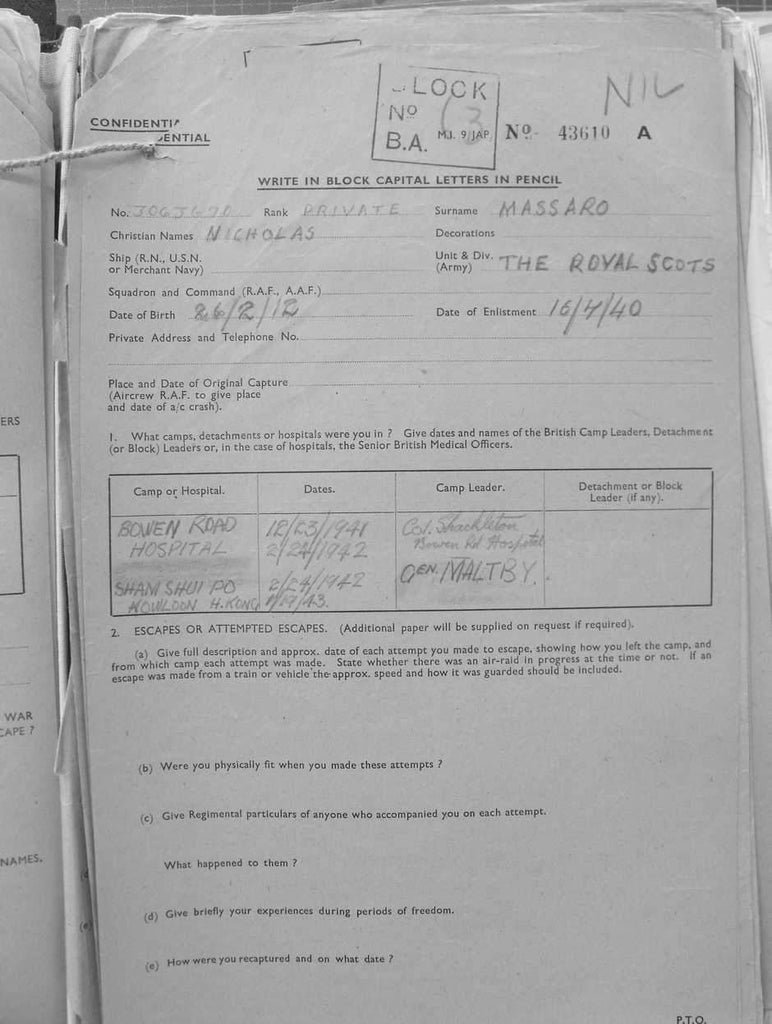 LOCK
Nº
B.A. M.I. 9/JAP
NIL
CONFIDENTI
ENTIAL
Nº 43610 A
WRITE IN BLOCK CAPITAL LETTERS IN PENCIL
No. Rank PRIVATE Surname MASSARO
Christian Names NICHOLAS Decorations
Ship (R.N., U.S.N. or Merchant Navy) Unit & Div. (Army) THE ROYAL SCOTS
Squadron and Command (R.A.F., A.A.F.)
Date of Birth 26/2/12 Date of Enlistment 16/4/40
Private Address and Telephone No.
Place and Date of Original Capture
(Aircrew R.A.F. to give place
and date of a/c crash).
1. What camps, detachments or hospitals were you in ? Give dates and names of the British Camp Leaders, Detachment
(or Block) Leaders or, in the case of hospitals, the Senior British Medical Officers.
Camp or Hospital. Dates. Camp Leader. Detachment or Block Leader (if any).
BOWEN ROAD 12/23/1941 Col. Shackleton
HOSPITAL 2/24/1942 Bowen Rd Hospital
SHAM SHUI PO 2/24/1942 GEN. MALTBY.
KOWLOON H. KONG
2. ESCAPES OR ATTEMPTED ESCAPES. (Additional paper will be supplied on request if required).
(a) Give full description and approx. date of each attempt you made to escape, showing how you left the camp, and
from which camp each attempt was made. State whether there was an air-raid in progress at the time or not. If an
escape was made from a train or vehicle the approx. speed and how it was guarded should be included.
(b) Were you physically fit when you made these attempts ?
(c) Give Regimental particulars of anyone who accompanied you on each attempt.
What happened to them ?
(d) Give briefly your experiences during periods of freedom.
(e) How were you recaptured and on what date ?
P.T.O.
ERS
WAR
CAPE ?
NAMES.